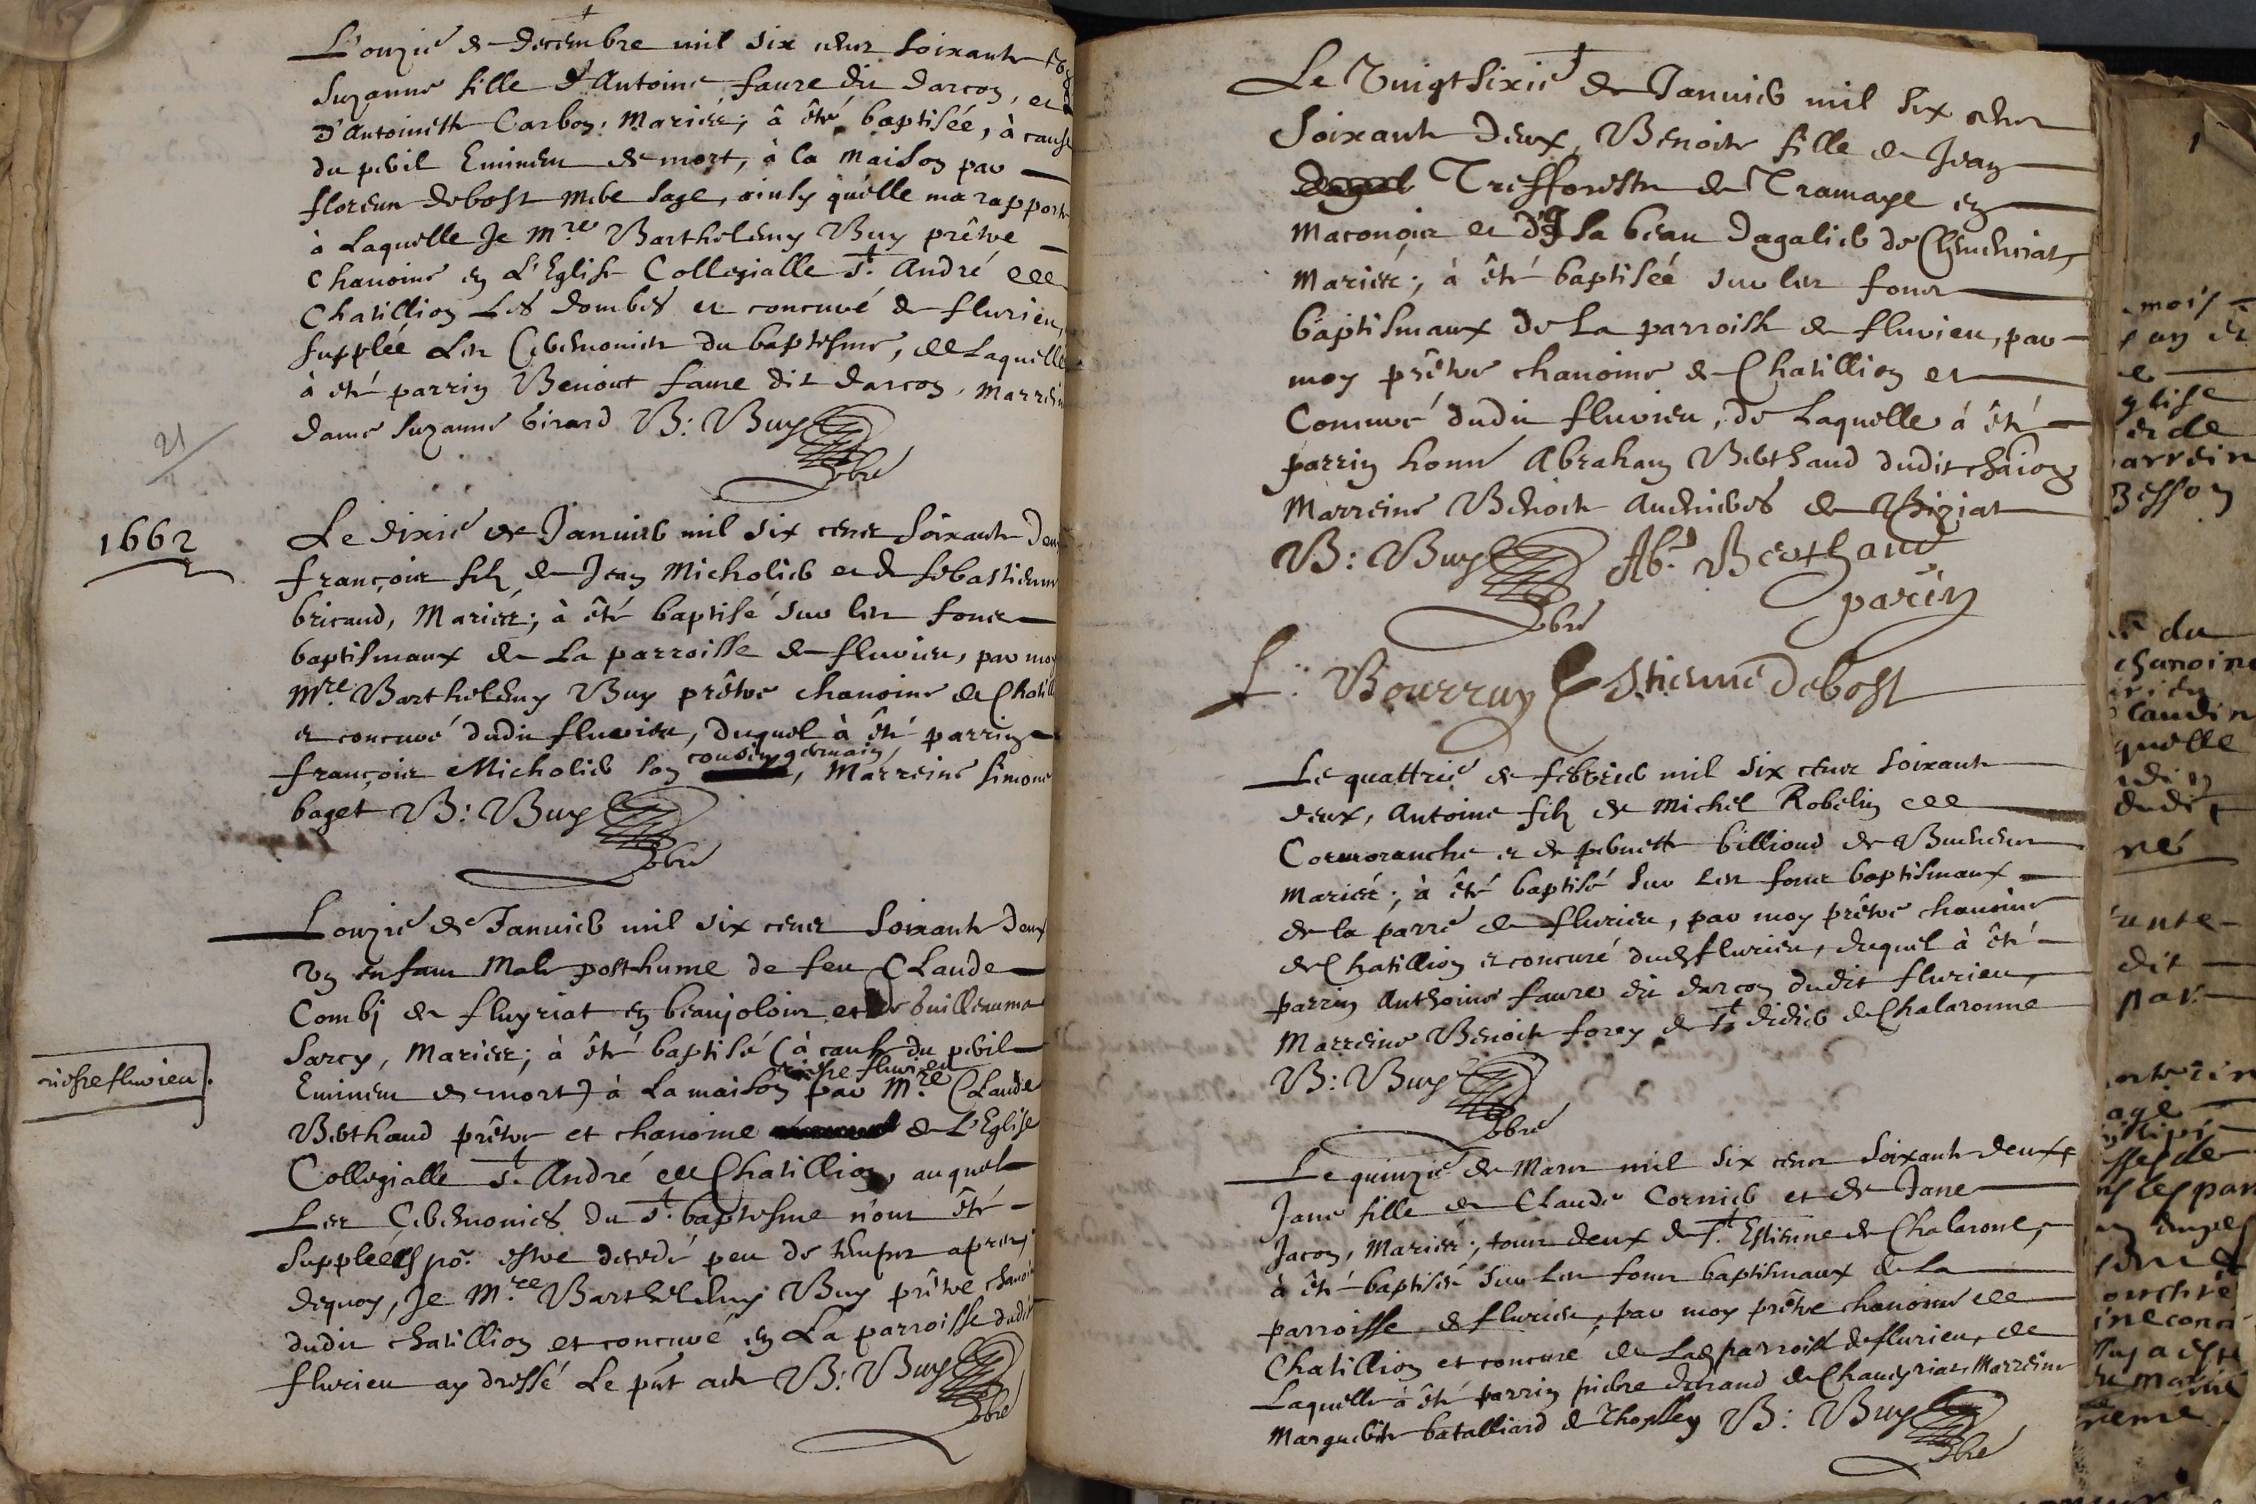 L'onzié de Decembre mil six cens soixante
Suzanne fille d'Antoine faure dit darcon, et
D'Antoinette Carbon, Mariés; à êté baptisée, à cause
du peril Eminent de mort, à la Maison par
florence debost mere sage, ainsy qu'elle ma rapporté
à Laquelle Je Mre Barthelemy Buy prêtre
Chanoine en L'Eglise Collegialle St. André de
Chatillion Les dombes et concuré de flurieu,
supplée Les Ceremonies du baptesme, de Laquelle
à eté parrin Benoict faure dit darcon, Marreine
dame Suzanne Girard B: Buy
pbre
21
1662
Le dixié de Januier mil six cens soixante Deux
françois filz de Jean Micholier et de sebastienne
bricaud, Mariés; à êté baptisé sur les fons
baptismaux de La parroisse de flurieu, par moy
Mre. Barthelemy Buy prêtre chanoine de Chatill
et concuré dudit flurieu, duquel à êté parrin
françois Micholier son cousin germain, Marreine simone
baget B: Buy
pbre
L'onzié de Januier mil six cens soixante Deux
Vn enfant Male posthume de feu Claude
Combj de fluyriat en beaujolois et de Guilleauma
Sarcy, Mariés; à êté baptisé (à cause du peril
Eminent de mort) à La maison riche flurieu par Mre. Claude
riche flurieu.
Berthaud prêtre et chanoine de L'Eglise
Collegialle St. André de Chatillion, auquel
Les Ceremonies du St. baptesme n'ont êté
Suppléés po. estre decedé peu de temps apres
dequoy, Je Mre Barthelemy Buy prêtre chanoi
dudit chatillion et concuré en La parroisse dudit
flurieu ay dressé Le pnt acte B: Buy
pbre
Le Vingtsixié de Januier mil six cens
Soixante Deux, Benoite fille de Jean
Treffoneste de Tramaye en
Maconois et d'Isabeau Dagalier de Chaueyriat,
Mariés; à êté baptisée sur les fons
baptismaux de La parroisse de flurieu, par
moy prêtre chanoine de Chatillion et
Concuré dudit flurieu, de Laquelle à êté
parrin honn Abraham Berthaud dudit chaion
Marreine Benoite Audriers de Biziat
B: Buy Ab. Berthaud
pbre parin
L: Bourruy Estienne Debost
Le quattrié de febvrier mil six cens soixante
deux, Antoine filz de Michel Robelin de
Cormoranche et de pernette billioud de
Mariés; à êté baptisé sur Les fons baptismaux
de la parre de flurieu, par moy prêtre chanoine
de Chatillion et concuré dud flurieu, duquel à êté
parrin Anthoine faure dit darcon dudit flurieu,
Marreine Benoite forey de St. didier de Chalaronne
B: Buy
pbre
Le quinzié de Mars mil six cens soixante deux,
Jane fille de Claude Cornier et de Jane
Jacon, Mariés; tous deux de St. Estienne de Chalarone,
à êté baptisée sur Les fons baptismaux de La
parroisse de flurieu, par moy prêtre chanoine de
Chatillion et concuré de Lad parroisse de flurieu, de
Laquelle à êté parrin pierre durand de Chaueyriat, Marreine
Marguerite batalliard de B: Buy
pbre
mois
glise
et de
arrein
Besson
du
chanoine
Claudin
quelle
dudit
né
dit
par